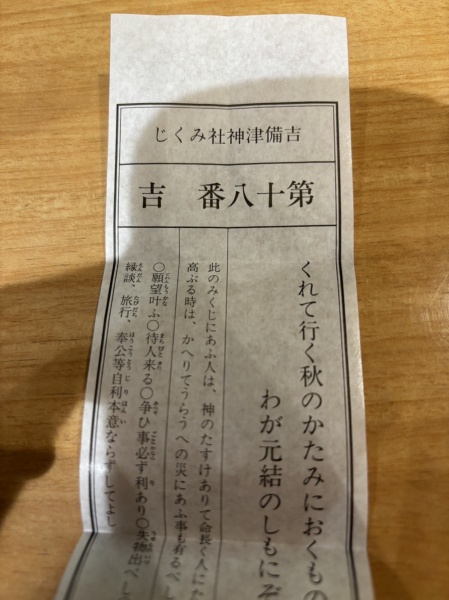 吉備津神社みくじ
第十八番 吉
くれて行く秋のかたみにおくもの
わが元結のしもにぞ
此のみくじにあふ人は、神のたすけありて命長く人にた
高ぶる時は、かへりてうらうへの災にあふ事も有るべし
○願望叶ふ○待人来る○争ひ事必ず利あり○失物出べし
縁談、旅行、奉公等自利本意ならずしてよし